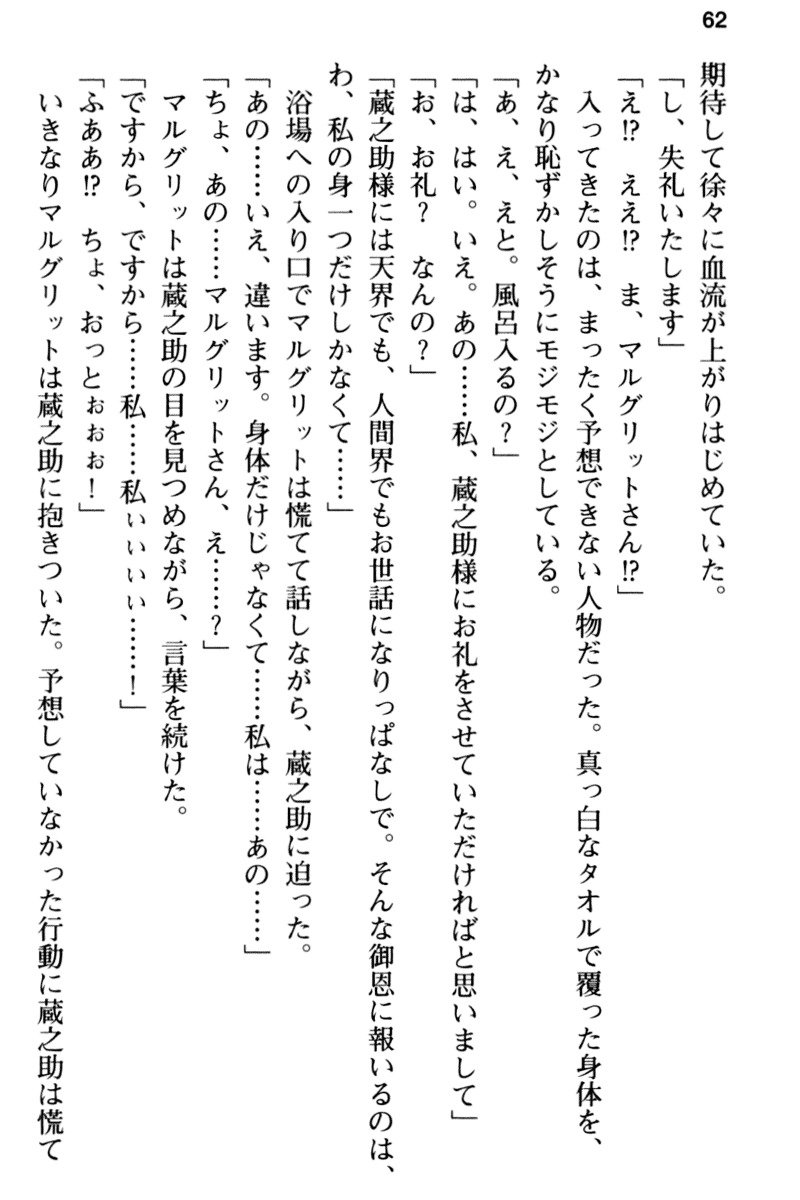 62
期待して徐々に血流が上がりはじめていた。
「し、失礼いたします」
「え!?　ええ!?　ま、マルグリットさん!?」
　入ってきたのは、まったく予想できない人物だった。真っ白なタオルで覆った身体を、
かなり恥ずかしそうにモジモジとしている。
「あ、え、えと。風呂入るの？」
「は、はい。いえ。あの……私、蔵之助様にお礼をさせていただければと思いまして」
「お、お礼？　なんの？」
「蔵之助様には天界でも、人間界でもお世話になりっぱなしで。そんな御恩に報いるのは、
わ、私の身一つだけしかなくて……」
　浴場への入り口でマルグリットは慌てて話しながら、蔵之助に迫った。
「あの……いえ、違います。身体だけじゃなくて……私は……あの……」
「ちょ、あの……マルグリットさん、え……？」
　マルグリットは蔵之助の目を見つめながら、言葉を続けた。
「ですから、ですから……私……私ぃぃぃぃ……！」
「ふああ!?　ちょ、おっとぉぉぉ！」
　いきなりマルグリットは蔵之助に抱きついた。予想していなかった行動に蔵之助は慌て